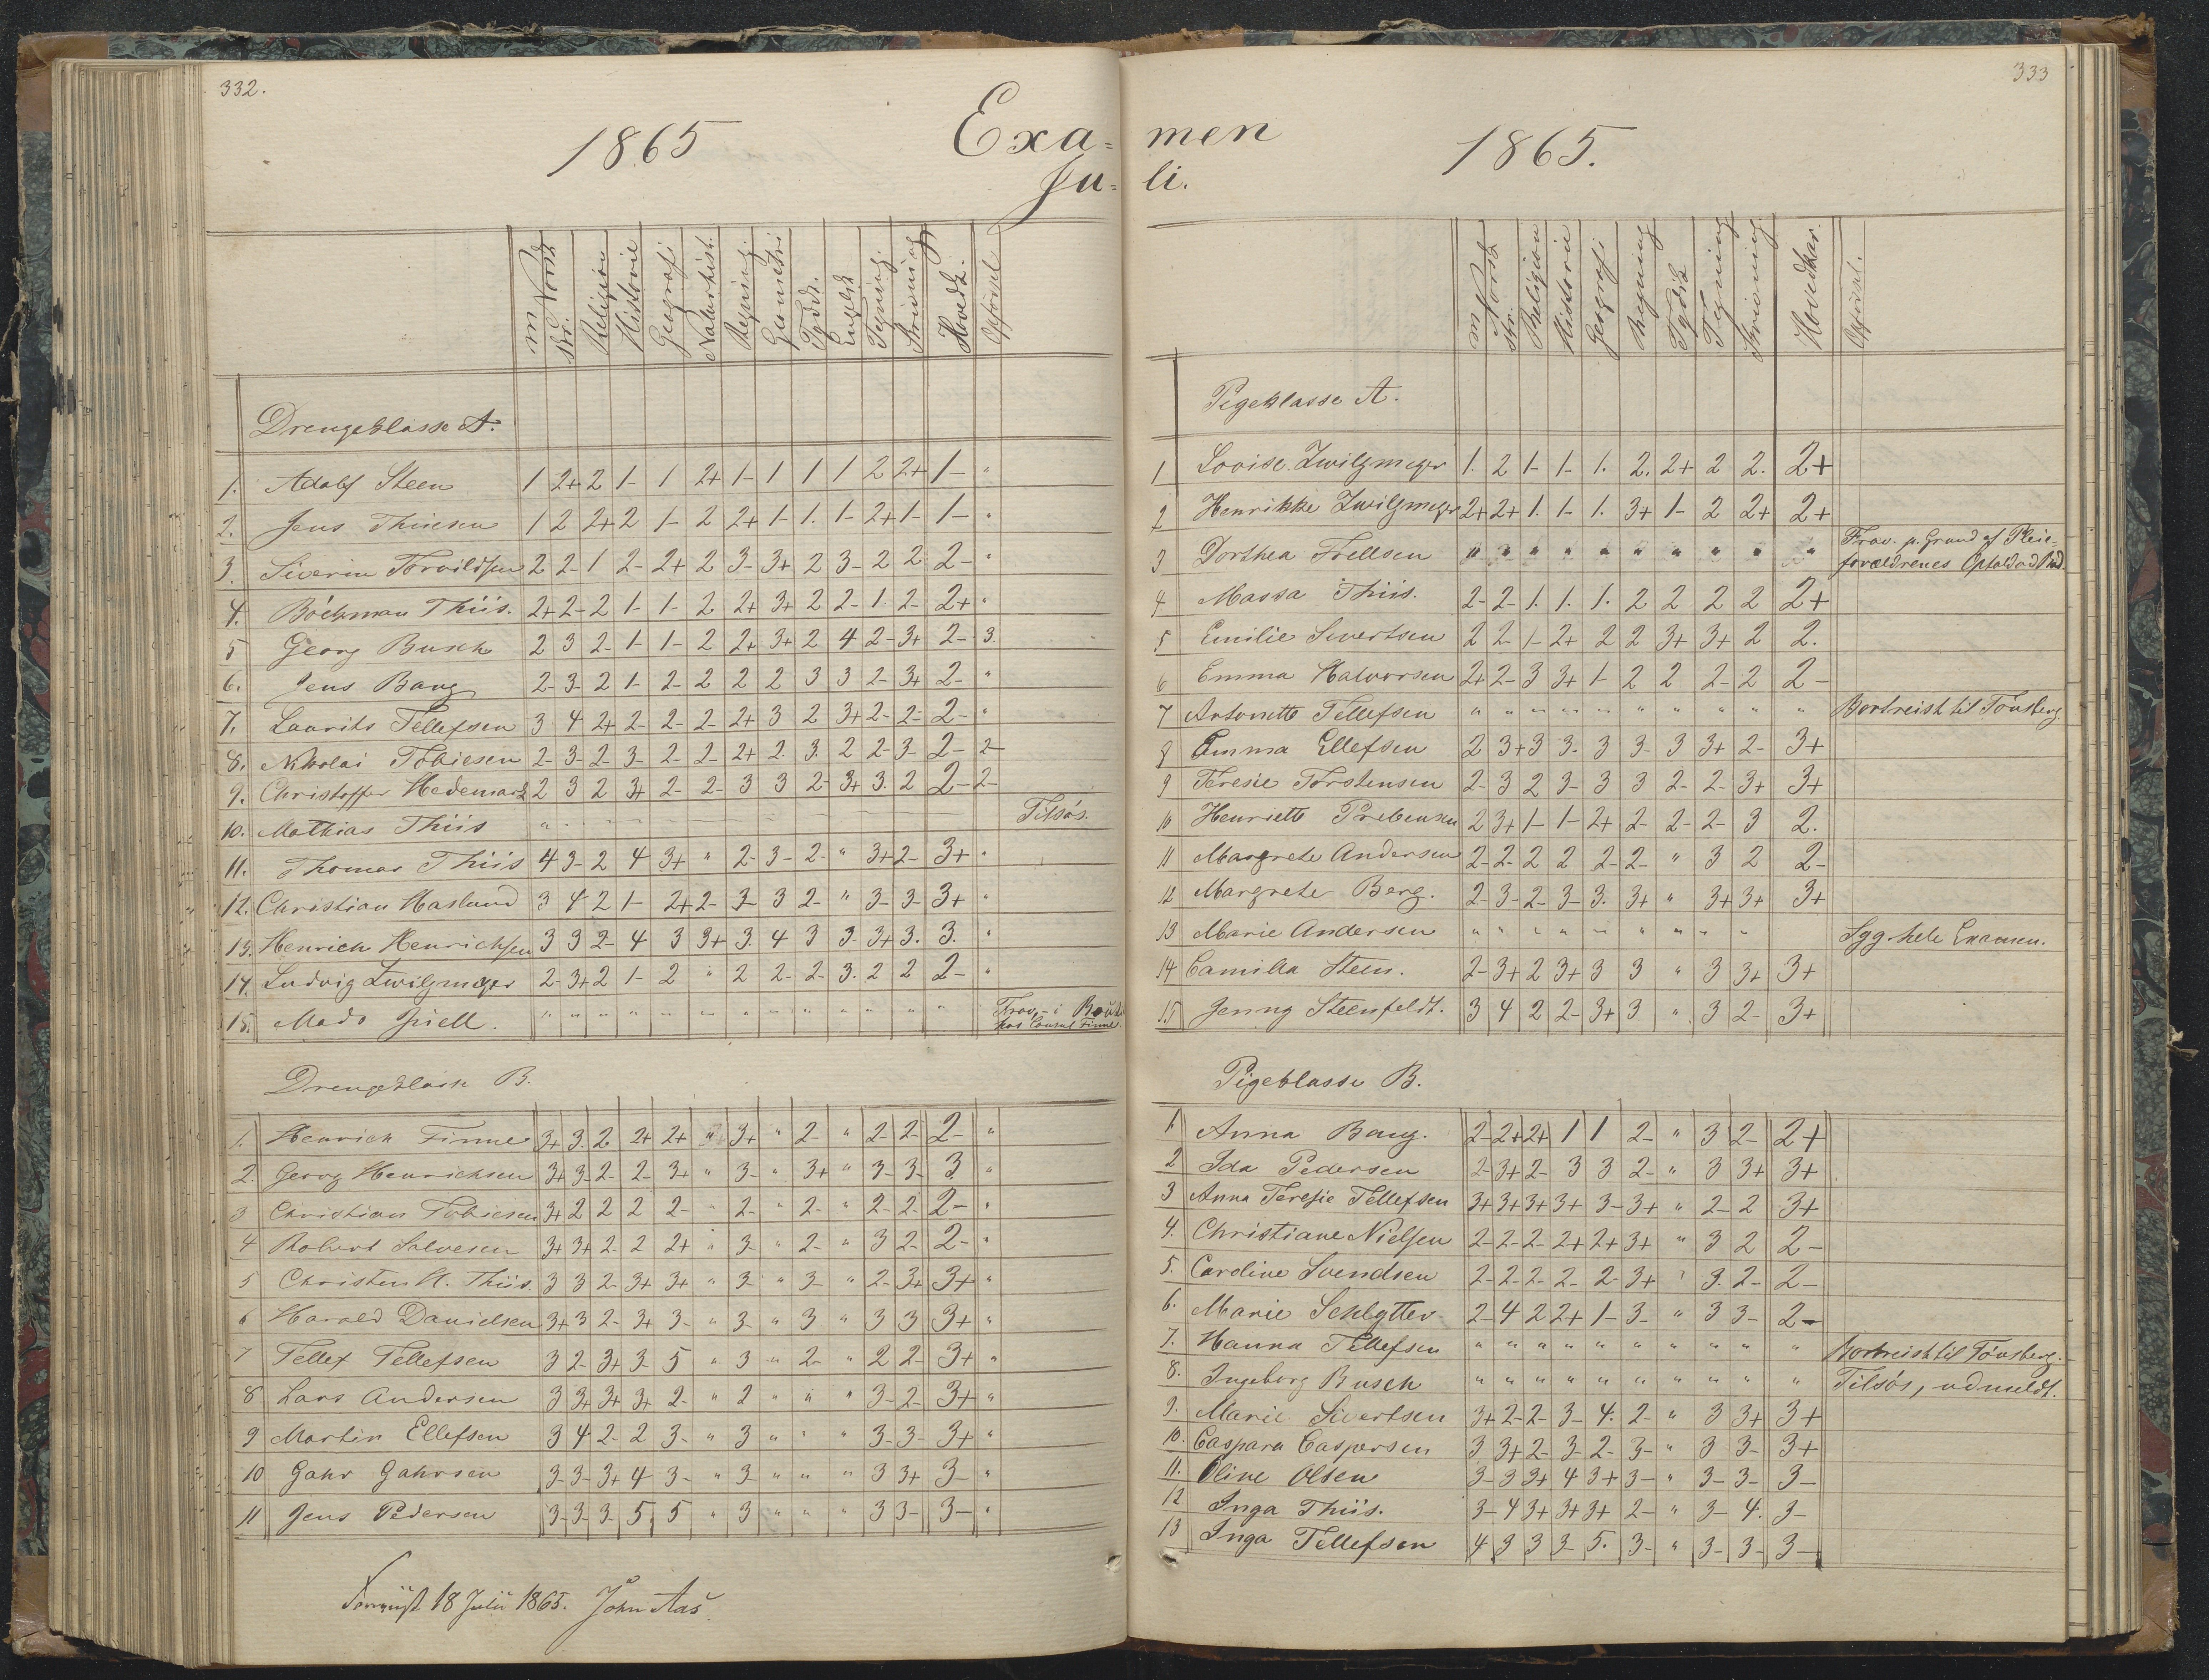 332.
1865 Exa-
Ju-
m. Norsk skr. Religion Historie Geografi Naturhist. Regning Geometri Tydsk. Engelsk Tegning Skrivning Hovedk. Opførsel
Drengeklasse A.
1. Adolf Steen 1 2+ 2 1- 1 2+ 1- 1 1 1 2 2+ 1- "
2. Jens Thiisen 1 2 2+ 2 1- 2 2+ 1- 1. 1- 2+ 1- 1- "
3. Siverin Torvildsen 2 2- 1 2- 2+ 2 3- 3+ 2 3- 2 2 2- "
4. Böckman Thiis. 2+ 2- 2 1- 1- 2 2+ 3+ 2 2- 1 2- 2+ "
5 Georg Busch 2 3 2- 1- 1- 2 2+ 3+ 2 4 2- 3+ 2- 3.
6. Jens Bang 2- 3- 2 1- 2- 2 2 2 3 3 2- 3+ 2- "
7. Laurits Tellefsen 3 4 2+ 2- 2- 2- 2+ 3 2 3+ 2- 2- 2- "
8. Nikolai Tobiesen 2- 3- 2- 3- 2- 2- 2+ 2. 3. 2 2- 3- 2- 2-
9. Christoffer Hedemark 2 3 2 3+ 2- 2- 3 3 2- 3+ 3. 2 2- 2-
10. Mathias Thiis " Tilsøs.
11. Thomas Thiis 4 3- 2 4 3+ " 2- 3- 2- " 3+ 2- 3+ "
12. Christian Haslund 3 4 2 1- 2+ 2- 3- 3 2- " 3- 3- 3+ "
13. Henrich Henrichsen 3 3 2- 4 3 3+ 3. 4 3 3. 3+ 3. 3. "
14. Ludvig Zwilgmeyer 2- 3+ 2 1- 2 " 2 2- 2- 3. 2 2 2- "
15. Mads Juell. " " " " " " " " " " " " " Frav. - i
hos Consul Finne
Drengeklasse B.
1. Henrich Finne 3+ 3. 2 2+ 2+ " 3+ " 2- " 2- 2- 2- "
2. Georg Henrichsen 3+ 3- 2- 2- 3+ " 3- " 3+ " 3- 3- 3 "
3 Christian Tobiesen 3+ 2 2 2 2- " 2- " 2- " 2- 2- 2- "
4 Robert Salvesen 3+ 3+ 2- 2 2+ " 3- " 2- " 3 2- 2- "
5 Christen H. Thiis. 3 3 2- 3+ 3+ " 3- " 3- " 2- 3+ 3+ "
6 Harald Danielsen 3+ 3 2- 3+ 3- " 3- " 3 " 3 3 3+ "
7 Tellef Tellefsen 3 2- 3+ 3- 5 " 3 " 2- " 2 2- 3+ "
8 Lars Andersen 3 3+ 3+ 3+ 2- " 2 " " " 3- 2- 3+ "
9 Martin Ellefsen 3 4 2- 2 3- " 3 " " " 3- 3- 3+ "
10 Gahr Gahrsen 3- 3- 3+ 4 3- " 3- " " " 3 3+ 3- "
11 Jens Pedersen 3- 3- 3- 5. 5 " 3 " " " 3 3- 3- "
18 Julii 1865. John Aas
333
men 1865.
li.
m Norsk skr. Religion Historie Geografi Regning Tydsk Tegning Skrivning Hovedkar. Opførsel.
Pigeklasse A.
1 Lovise Zwilgmeyer 1. 2 1- 1- 1. 2. 2+ 2 2. 2+
2 Henrikke Zwilgmeyer 2+ 2+ 1. 1- 1. 3+ 1- 2 2+ 2+
3 Dorthea Trellsen " " " " " " " " " " Frav. p. Grund af Pleie-
forældrenes Ophold ved Bad.
4 Massa Thiis. 2- 2- 1. 1. 1. 2 2 2 2 2+
5 Emilie Sivertsen 2 2- 1- 2+ 2 2 3+ 3+ 2 2.
6 Emma Halvorsen 2+ 2- 3 3+ 1- 2 2 2- 2 2-
7 Antonette Tellefsen " " " " " " " " " " Bortreist til Tönsberg.
8 Emma Ellefsen 2 3+ 3 3- 3 3- 3 3+ 2- 3+
9 Teresie Torstensen 2- 3 2 3- 3 3 2- 2- 3+ 3+
10 Henriette Prebensen 2 3+ 1- 1- 2+ 2- 2- 2- 3 2.
11 Margrete Andersen 2- 2- 2 2 2- 2- " 3 2 2-
12 Margrete Berg. 2- 3- 2- 3- 3. 3+ " 3+ 3+ 3+
13 Marie Andersen " " " " " " " " " Syg hele Examen.
14 Camilla Steen. 2- 3+ 2 3+ 3 3 " 3 3+ 3+
15 Jenny Steenfeldt. 3 4 2 2- 3+ 3 " 3 2- 3+
Pigeklasse B.
1 Anna Bang. 2- 2+ 2+ 1 1 2- " 3 2- 2+
2 Ida Pedersen 2- 3+ 2- 3 3 2- " 3 3+ 3+
3 Anna Teresie Tellefsen 3+ 3+ 3+ 3+ 3- 3+ " 2- 2 3+
4. Christiane Nielsen 2- 2- 2- 2+ 2+ 3+ " 3 2 2-
5. Caroline Svendsen 2- 2- 2- 2- 2- 3+ " 3. 2- 2-
6. Marie Schlytter 2- 4 2 2+ 1- 3- " 3 3- 2-
7. Hanna Tellefsen " " " " " " " " " " Bortreist til Tönsberg.
8. Ingeborg Busch " " " " " " " " " " Tilsøs, udmeldt.
9. Marie Sivertsen 3+ 2- 2- 3- 4. 2- " 3 3+ 3+
10. Caspara Caspersen 3 3+ 2- 3- 2- 3- " 3 3- 3+
11. Oline Olsen 3- 3 3+ 4 3+ 3- " 3- 3- 3-
12 Inga Thiis. 3- 4 3+ 3+ 3+ 2- " 3- 4. 3-
13 Inga Tellefsen 4 3 3 3- 5. 3- " 3- 3- 3-